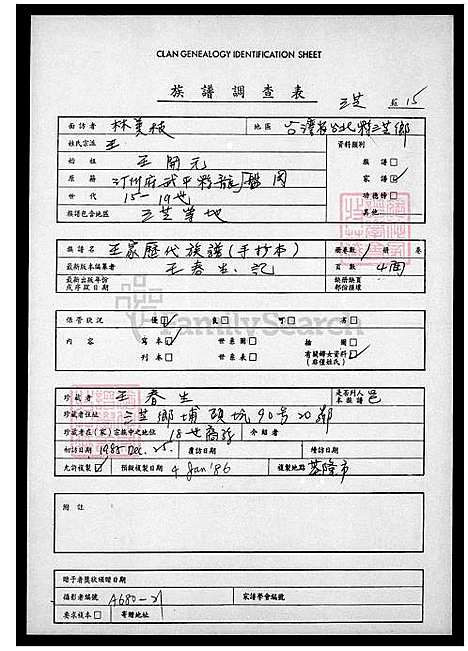 CLAN GENEALOGY IDENTIFICATION SHEET
族譜調查表
三芝 15
面訪者 林美枝 地區 台灣省台北縣三芝鄉
姓氏宗派 王 資料類別
始祖 王開元 族譜□
原籍 汀州府武平縣 家譜☑
世代 15-19世 功德榜□
族譜包含地區 三芝等地 其他
族譜名 王家歷代族譜(手抄本) 冊卷數 1 冊 卷
最新版本編纂者 王春生記 頁數 4面
最新出版年份或存放日期 缺冊缺頁部份描塚
保管狀況 優☑ 良□ 可□ 劣□
內容 寫本☑ 世系圖□ 插圖□
刊本□ 世系表□ 有關婦女資料☑(非僅姓氏)
珍藏者 王春生 是否列入本族譜 是
珍藏者住址 三芝鄉埔頭坑90号20鄰
珍藏者在(家)宗族中之地位 18世裔孫 介紹者
初訪日期 1985 Dec. 25. 廣訪日期 續訪日期
允許複製☑ 預擬複製日期 4 Jan '86 複製地點 基隆市
附註
贈予者獎狀頒贈日期
攝影者編號 A680-21 家譜學會編號
要求複本□ 寄贈地址
FamilySearch